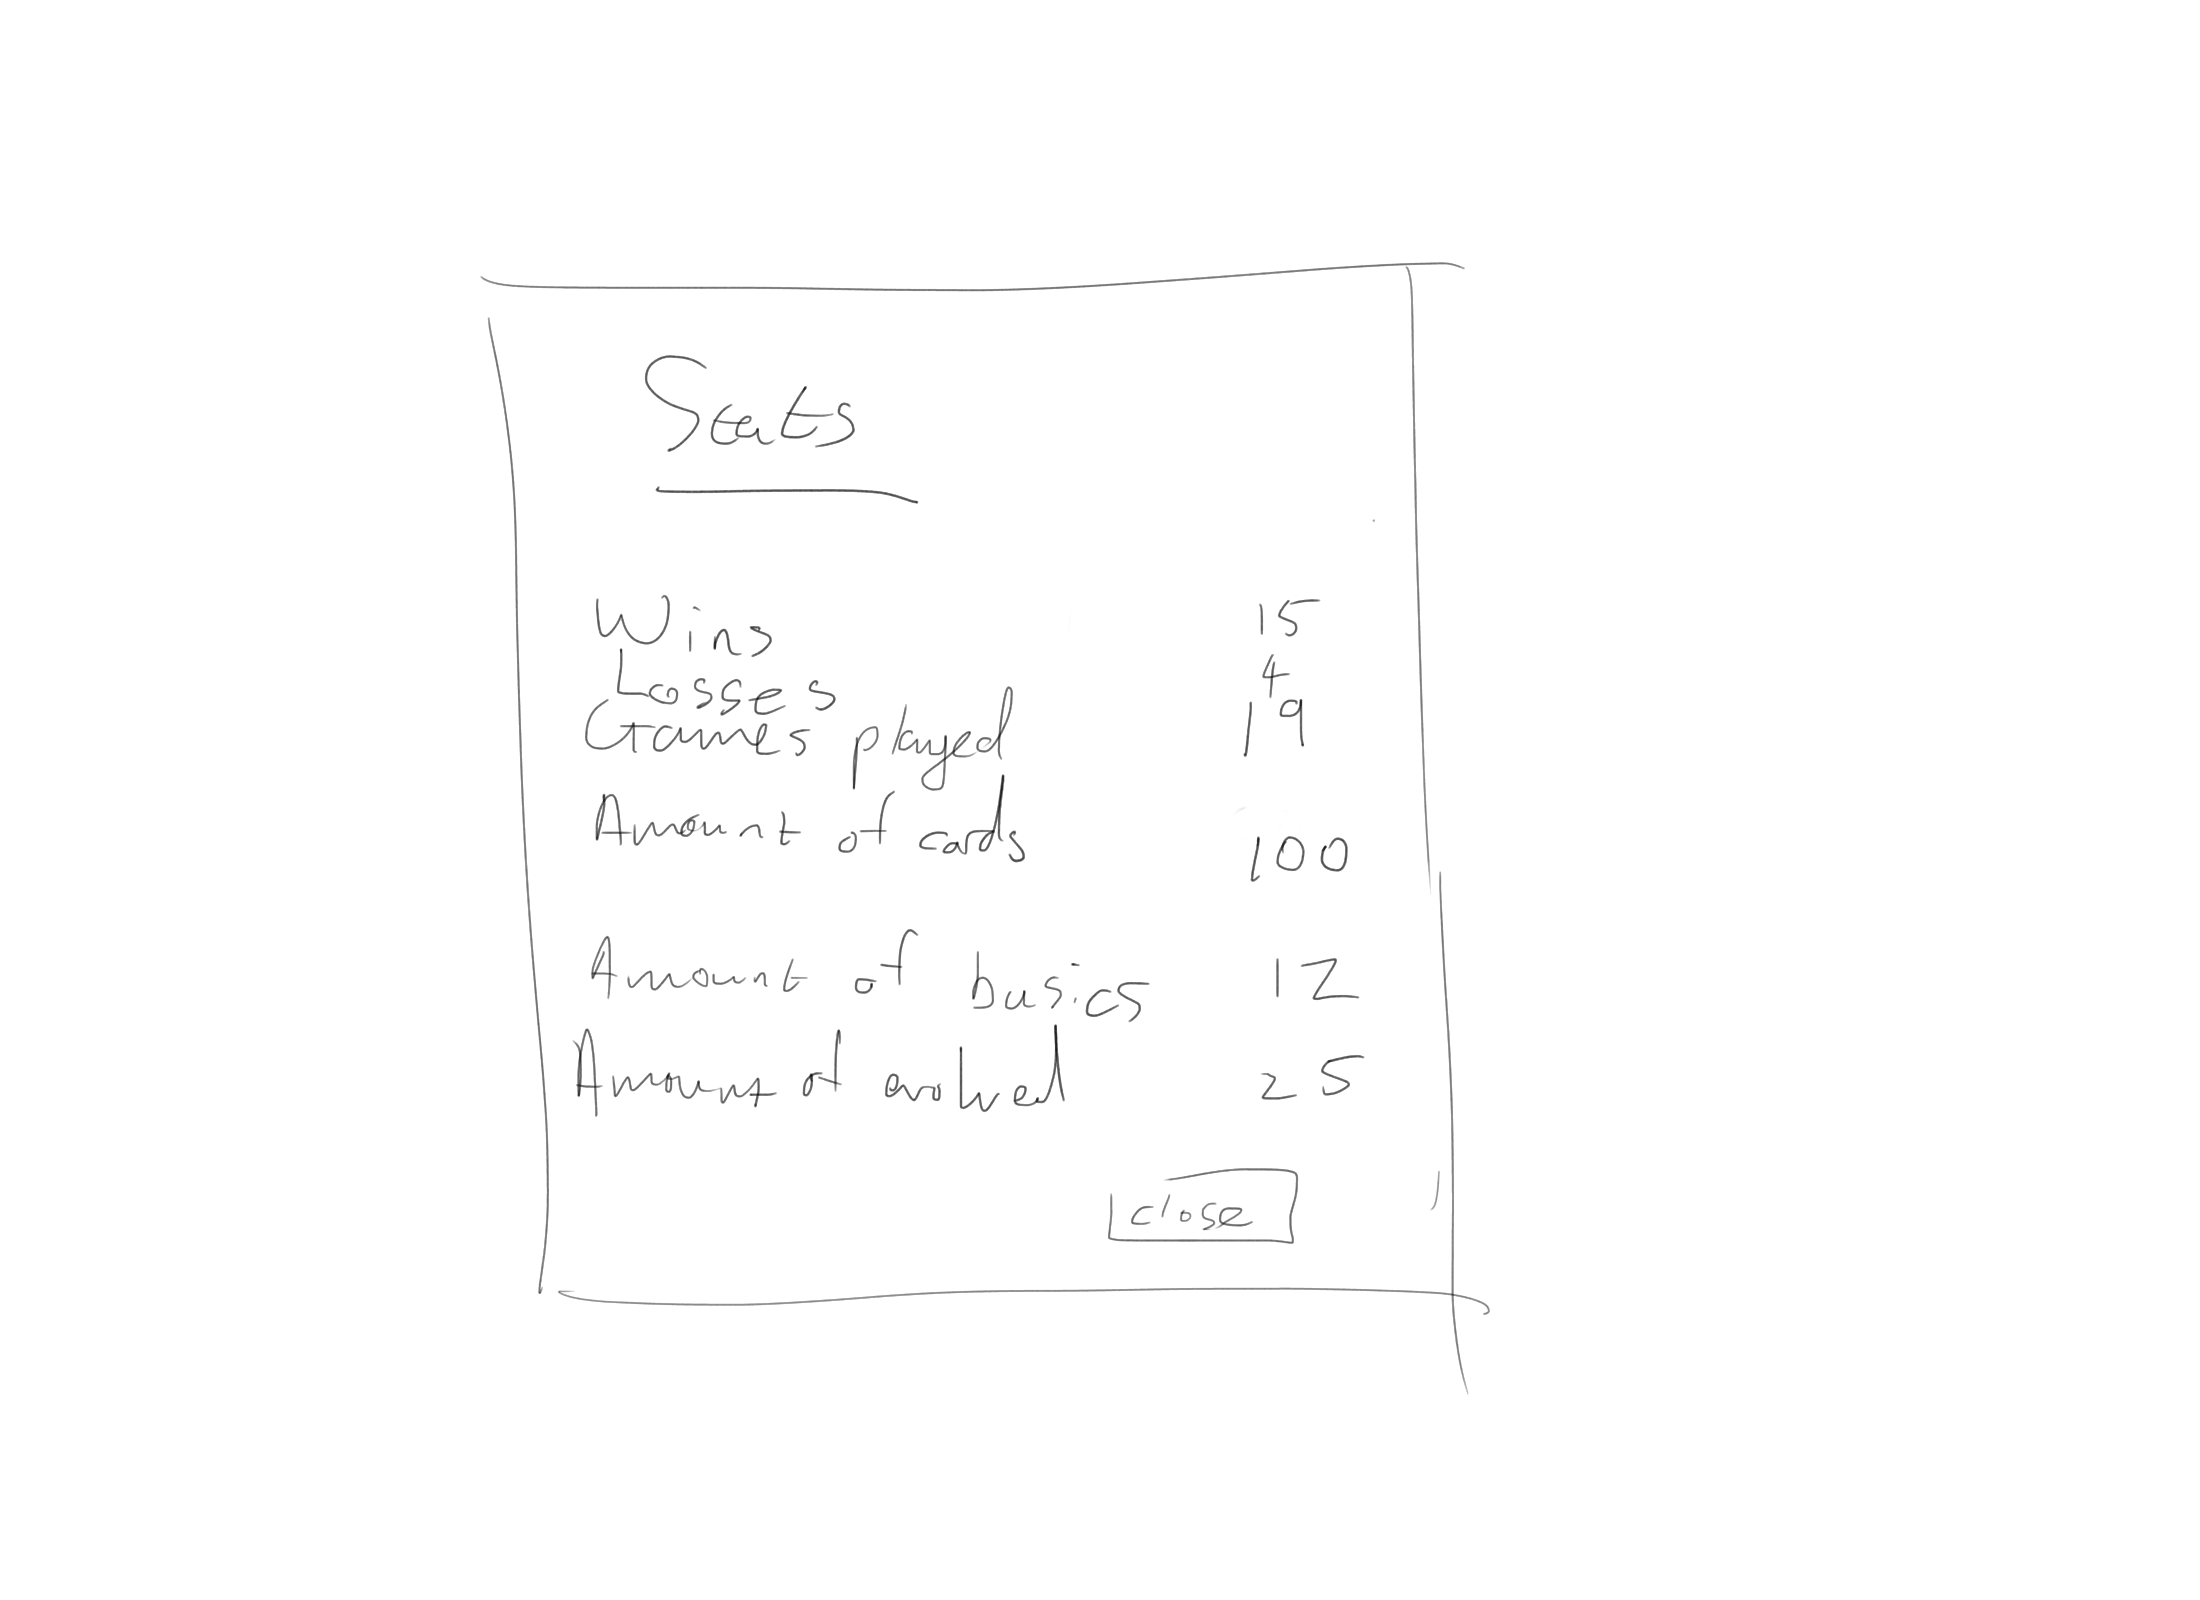 Stats
Wins 15
Losses 4
Games played 19
Amount of cards 100
Amount of basics 12
Amount of evolved 25
close